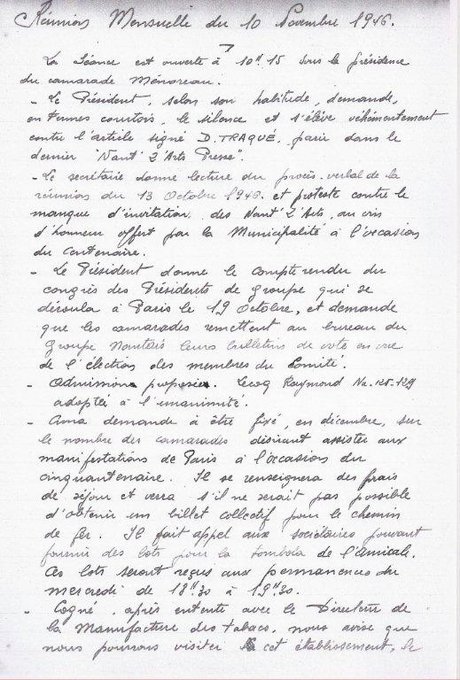 Réunion Mensuelle du 10 Novembre 1946.
La Séance est ouverte à 10h.15 sous la présidence
du camarade Ménoreau.
- Le Président, selon son habitude, demande,
en termes courtois, le silence et s'élève véhémentement
contre l'article signé D. TRAQUÉ, parue dans le
dernier "Nant' Z'Arts Presse".
- Le secrétaire donne lecture du procès-verbal de la
réunion du 13 Octobre 1946. et proteste contre le
manque d'invitation des Nant' Z'Arts, au vin
d'honneur offert par la Municipalité à l'occasion
du Centenaire.
- Le Président donne le compte rendu du
congrès des Présidents de groupe qui se
déroula à Paris le 19 Octobre, et demande
que les camarades remettent au bureau du
Groupe Nantais leurs bulletins de vote en vue
de l'élection des membres du Comité.
- Admissions proposées. Lecoq Raymond Na. 125-129
adoptée à l'unanimité.
- demande à être fixé, en décembre, sur
le nombre des camarades désirant assister aux
manifestations de Paris à l'occasion du
cinquantenaire. Il se renseignera des frais
de séjour et verra s'il ne serait pas possible
d'obtenir un billet collectif pour le chemin
de fer. Il fait appel aux sociétaires pouvant
fournir des lots pour la tombola de l'Amicale.
Ces lots seront reçus aux permanences du
mercredi de 18h30 à 19h.30.
- Cogné, après entente avec le Directeur de
la Manufacture des tabacs, nous avise que
nous pourrons visiter cet établissement, le